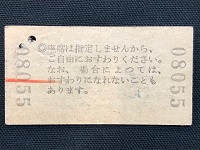 08055
◎座席は指定しませんから、
ご自由におすわりください。
なお、場合によっては、
おすわりになれないことも
あります。
08055